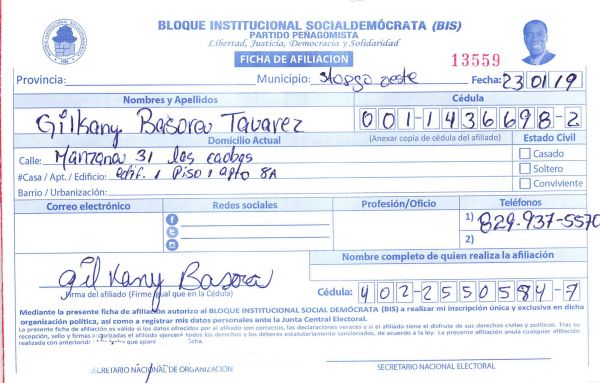 BLOQUE INSTITUCIONAL SOCIALDEMÓCRATA (BIS)
PARTIDO PEÑAGOMISTA
Libertad, Justicia, Democracia y Solidaridad
FICHA DE AFILIACION
13559
Provincia: Municipio: Stopgo oeste Fecha: 23/01/19
Nombres y Apellidos Cédula
Gilkany Basora Tavarez 001-1436698-2
Domicilio Actual (Anexar copia de cédula del afiliado) Estado Civil
Calle: Manzana 31 las caobas Casado
#Casa / Apt. / Edificio: edif. 1 Piso 1 apto 8A Soltero
Barrio / Urbanización: Conviviente
Correo electrónico Redes sociales Profesión/Oficio Teléfonos
1) 829-937-5570
2)
Nombre completo de quien realiza la afiliación
Gilkany Basora
Firma del afiliado (Firme igual que en la Cédula) Cédula: 402-2550584-7
Mediante la presente ficha de afiliación autorizo al BLOQUE INSTITUCIONAL SOCIAL DEMÓCRATA (BIS) a realizar mi inscripción única y exclusiva en dicha
organización política, así como a registrar mis datos personales ante la Junta Central Electoral.
La presente ficha de afiliación es válida si los datos ofrecidos por el afiliado son correctos, las declaraciones veraces y si el afiliado tiene el disfrute de sus derechos civiles y políticos. Tras su
recepción, sello y firmas autorizadas el afiliado ejercerá todos los derechos y los deberes estatutariamente sancionados, de acuerdo a la ley. La presente afiliación anula cualquier afiliación
realizada con que apar ficha.
SECRETARIO NACIONAL DE ORGANIZACION SECRETARIO NACIONAL ELECTORAL